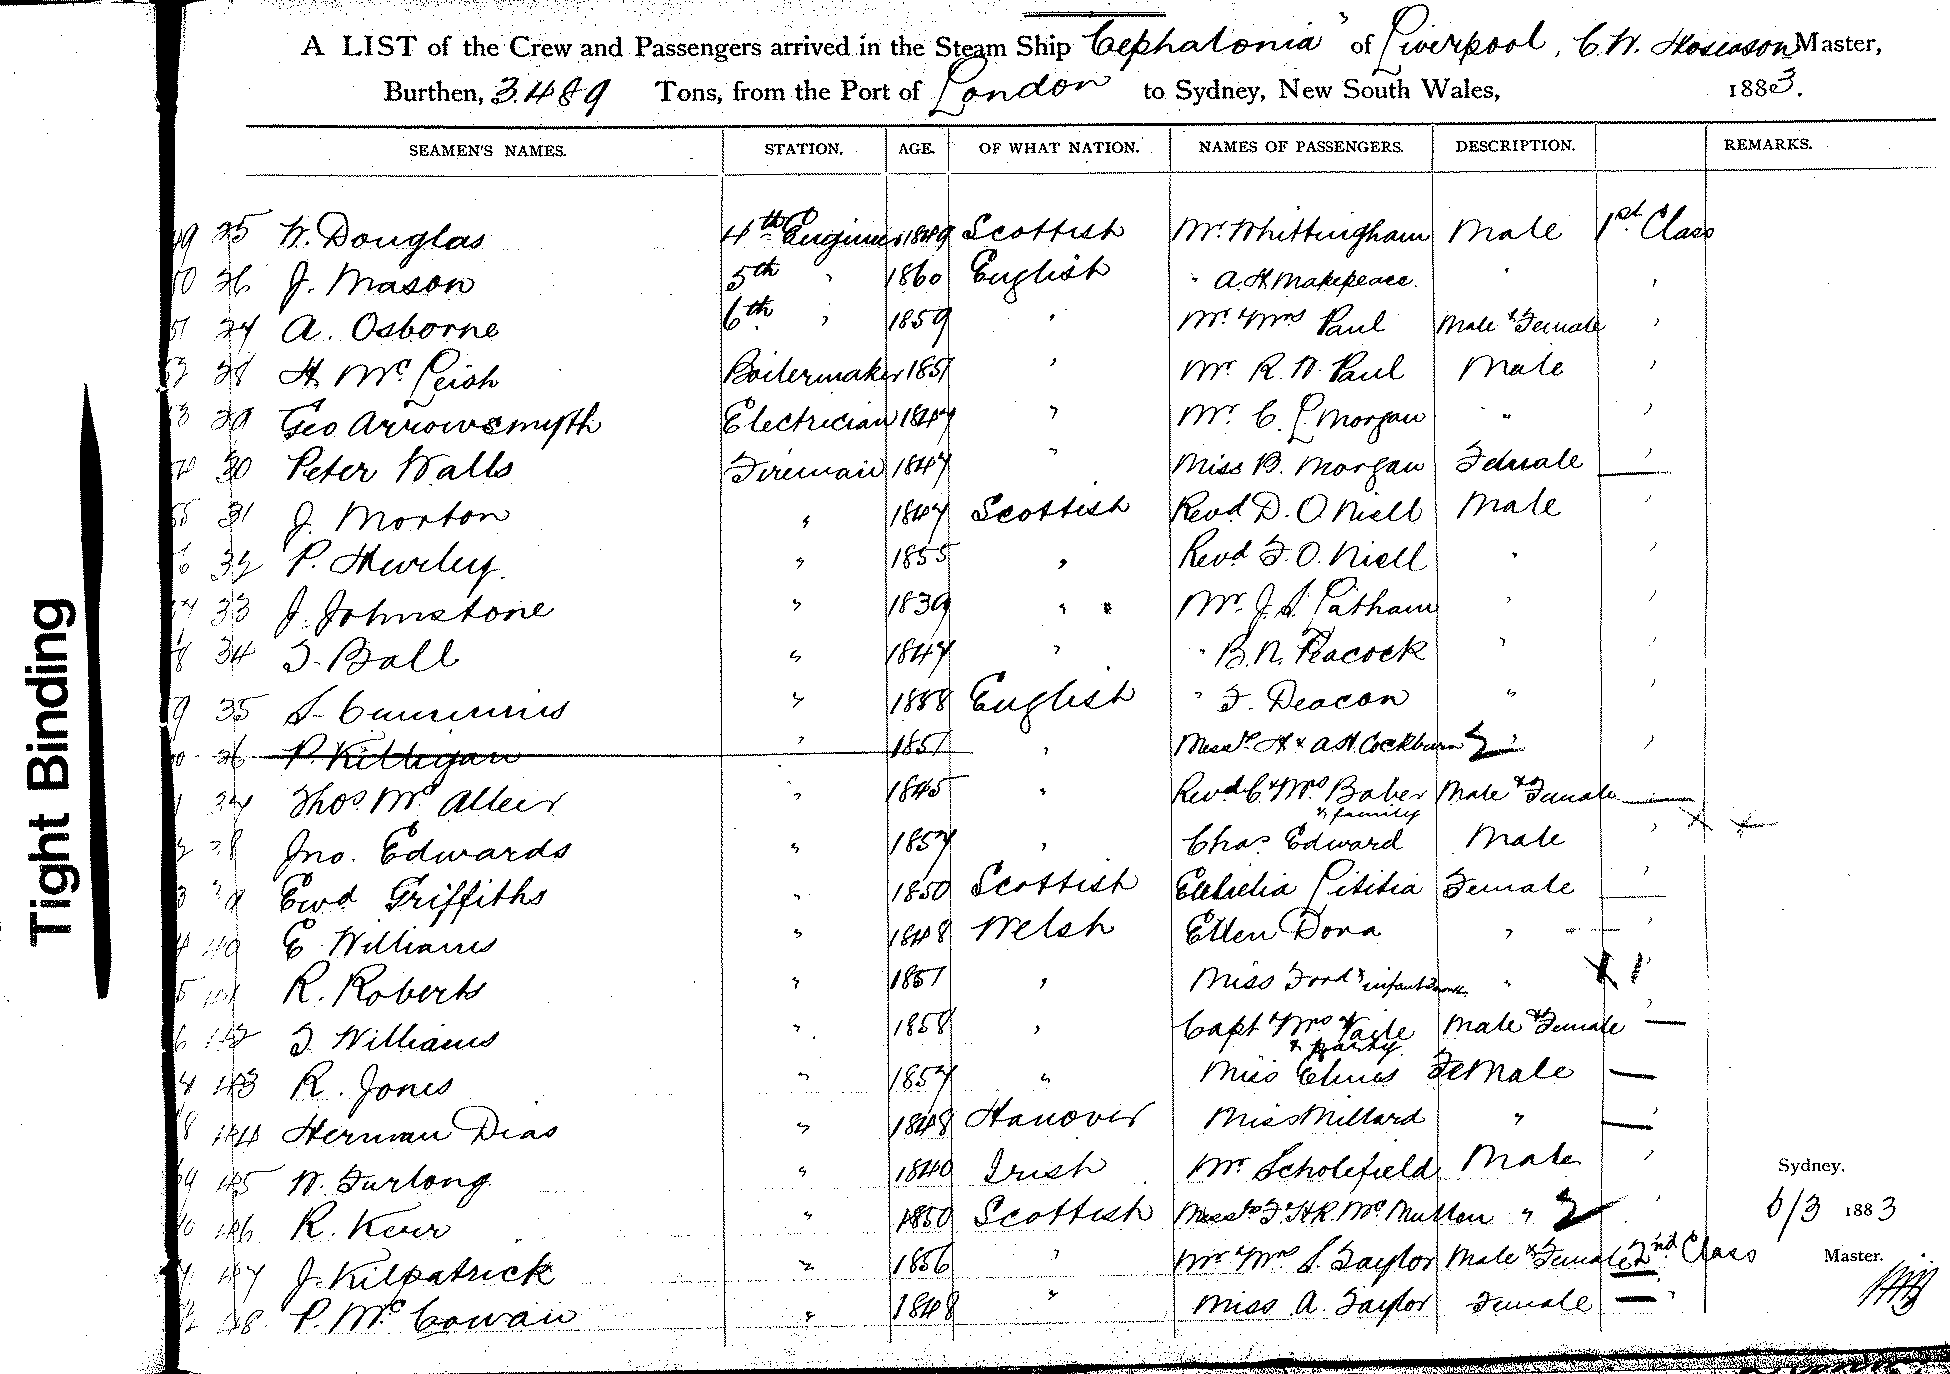 A LIST of the Crew and Passengers arrived in the Steam Ship "Cephalonia" of Liverpool, C. W. Hoseason Master,
Burthen, 3.489 Tons, from the Port of London to Sydney, New South Wales, 1883.
SEAMEN'S NAMES. STATION. AGE. OF WHAT NATION. NAMES OF PASSENGERS. DESCRIPTION. REMARKS.
25 W. Douglas 4th Engineer 1849 Scottish Mr. Whittingham Male 1st Class
26 J. Mason 5th " 1860 English " A. H. Makepeace " "
27 A. Osborne 6th " 1859 " Mr. & Mrs Paul Male & Female "
28 H. McLeish Boilermaker 1851 " Mr. R. W. Paul Male "
29 Geo Arrowsmyth Electrician 1847 " Mr. C. L. Morgan " "
30 Peter Walls Fireman 1847 " Miss B. Morgan Female "
31 J. Morton " 1847 Scottish Revd D. O Niell Male "
32 P. Hurley. " 1855 " Revd F. O. Niell " "
33 J. Johnstone " 1839 " " Mr. J. S. Latham " "
34 T. Ball " 1847 " " B. N. Peacock " "
35 S. Cummins " 1858 English " F. Deacon " "
36 P. Killigan " 1851 " Messrs H & A H. Cockburn 2 " "
37 Thos. Mc " 1845 " Revd C & Mrs Baber Male & Female
& family
38 Jno. Edwards " 1857 " Chas Edward Male "
39 Ewd Griffiths " 1850 Scottish Lititia Female "
40 E Williams " 1848 Welsh Ellen Dora " "
41 R. Roberts " 1851 " Miss Ford & infant " 1
42 T. Williams " 1858 " Capt & Mrs Male & Female "
& family
43 R. Jones " 1857 " Miss Female
44 Herman Dias " 1848 Hanover Miss Millard " "
45 W. Furlong " 1840 Irish Mr Scholefield Male "
Sydney.
46 R. Kerr " 1850 Scottish Messrs F. & R. Mc " 2 "
6/3 1883
47 J. Kilpatrick " 1856 " Mr & Mrs S. Taylor Male & Female 2nd Class
Master.
48 P. McCowan " 1848 " Miss A. Taylor Female "
Tight Binding